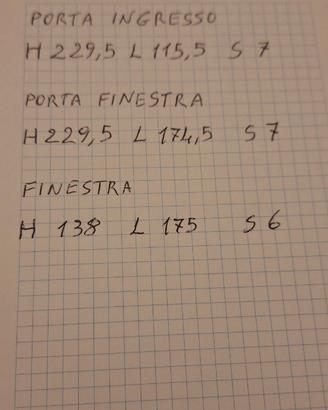 PORTA INGRESSO
H 229,5 L 115,5 S 7
PORTA FINESTRA
H 229,5 L 174,5 S 7
FINESTRA
H 138 L 175 S 6